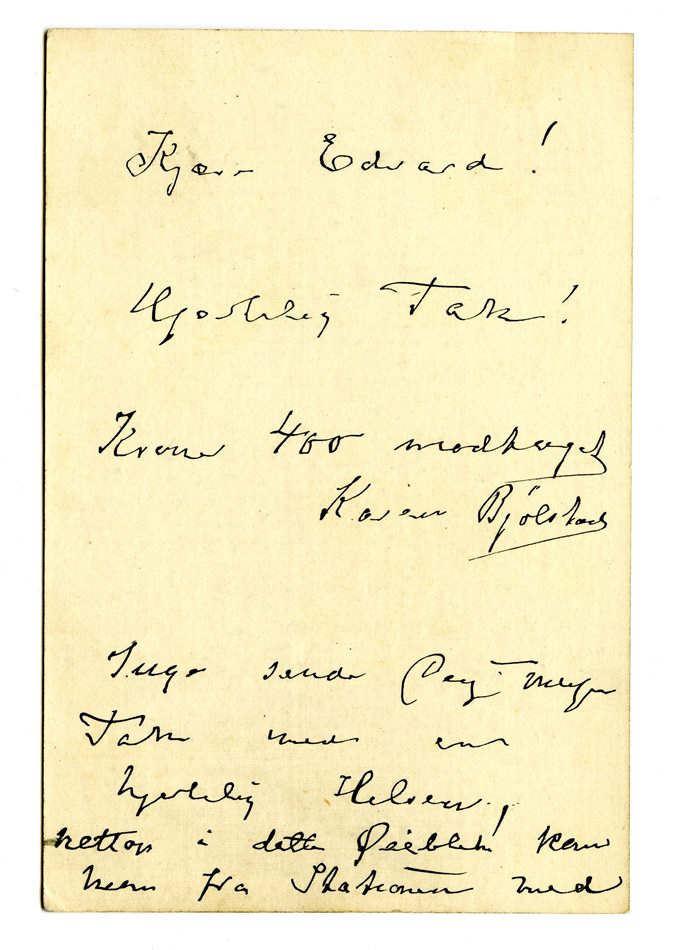 Kjære Edvard!
Hjertelig Tak!
Kroner 400 modtaget
Karen Bjølstad
Inger sender Dig megen
Tak med en
hjertelig Helsen,
nettop i dette Øieblik kom
hun fra Stationen med